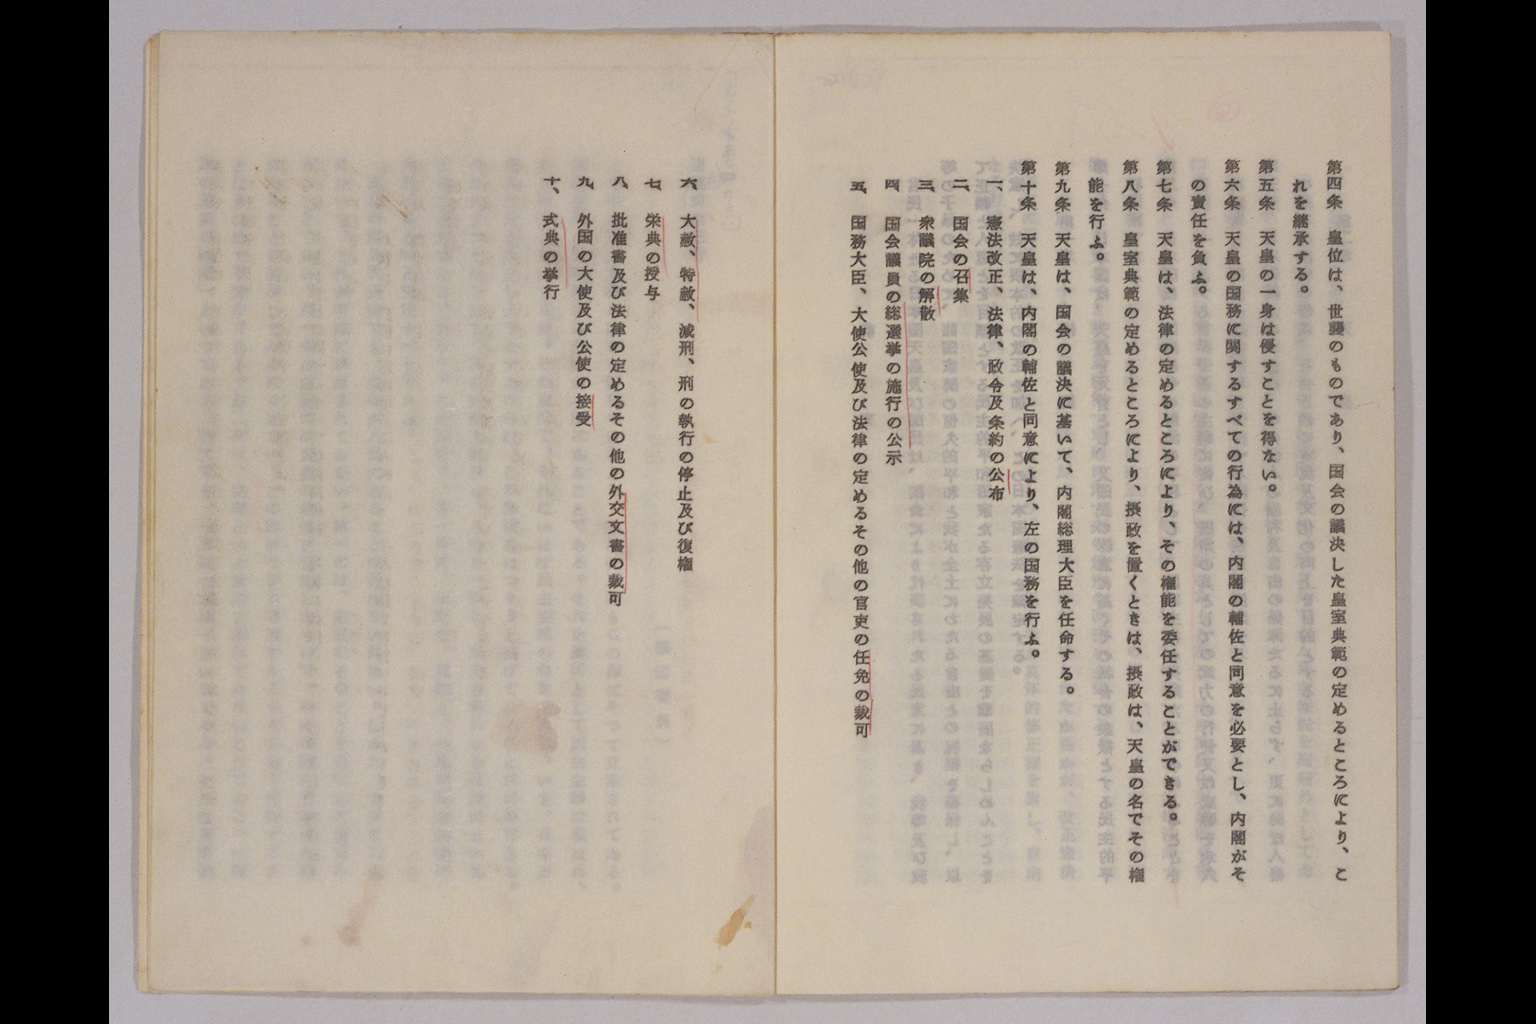 第四条　皇位は、世襲のものであり、国会の議決した皇室典範の定めるところにより、こ
れを継承する。
第五条　天皇の一身は侵すことを得ない。
第六条　天皇の国務に関するすべての行為には、内閣の輔佐と同意を必要とし、内閣がそ
の責任を負ふ。
第七条　天皇は、法律の定めるところにより、その権能を委任することができる。
第八条　皇室典範の定めるところにより、摂政を置くときは、摂政は、天皇の名でその権
能を行ふ。
第九条　天皇は、国会の議決に基いて、内閣総理大臣を任命する。
第十条　天皇は、内閣の輔佐と同意により、左の国務を行ふ。
一、憲法改正、法律、政令及条約の公布
二、国会の召集
三、衆議院の解散
四、国会議員の総選挙の施行の公示
五、国務大臣、大使公使及び法律の定めるその他の官吏の任免の裁可
六、大赦、特赦、減刑、刑の執行の停止及び復権
七、栄典の授与
八、批准書及び法律の定めるその他の外交文書の裁可
九、外国の大使及び公使の接受
十、式典の挙行